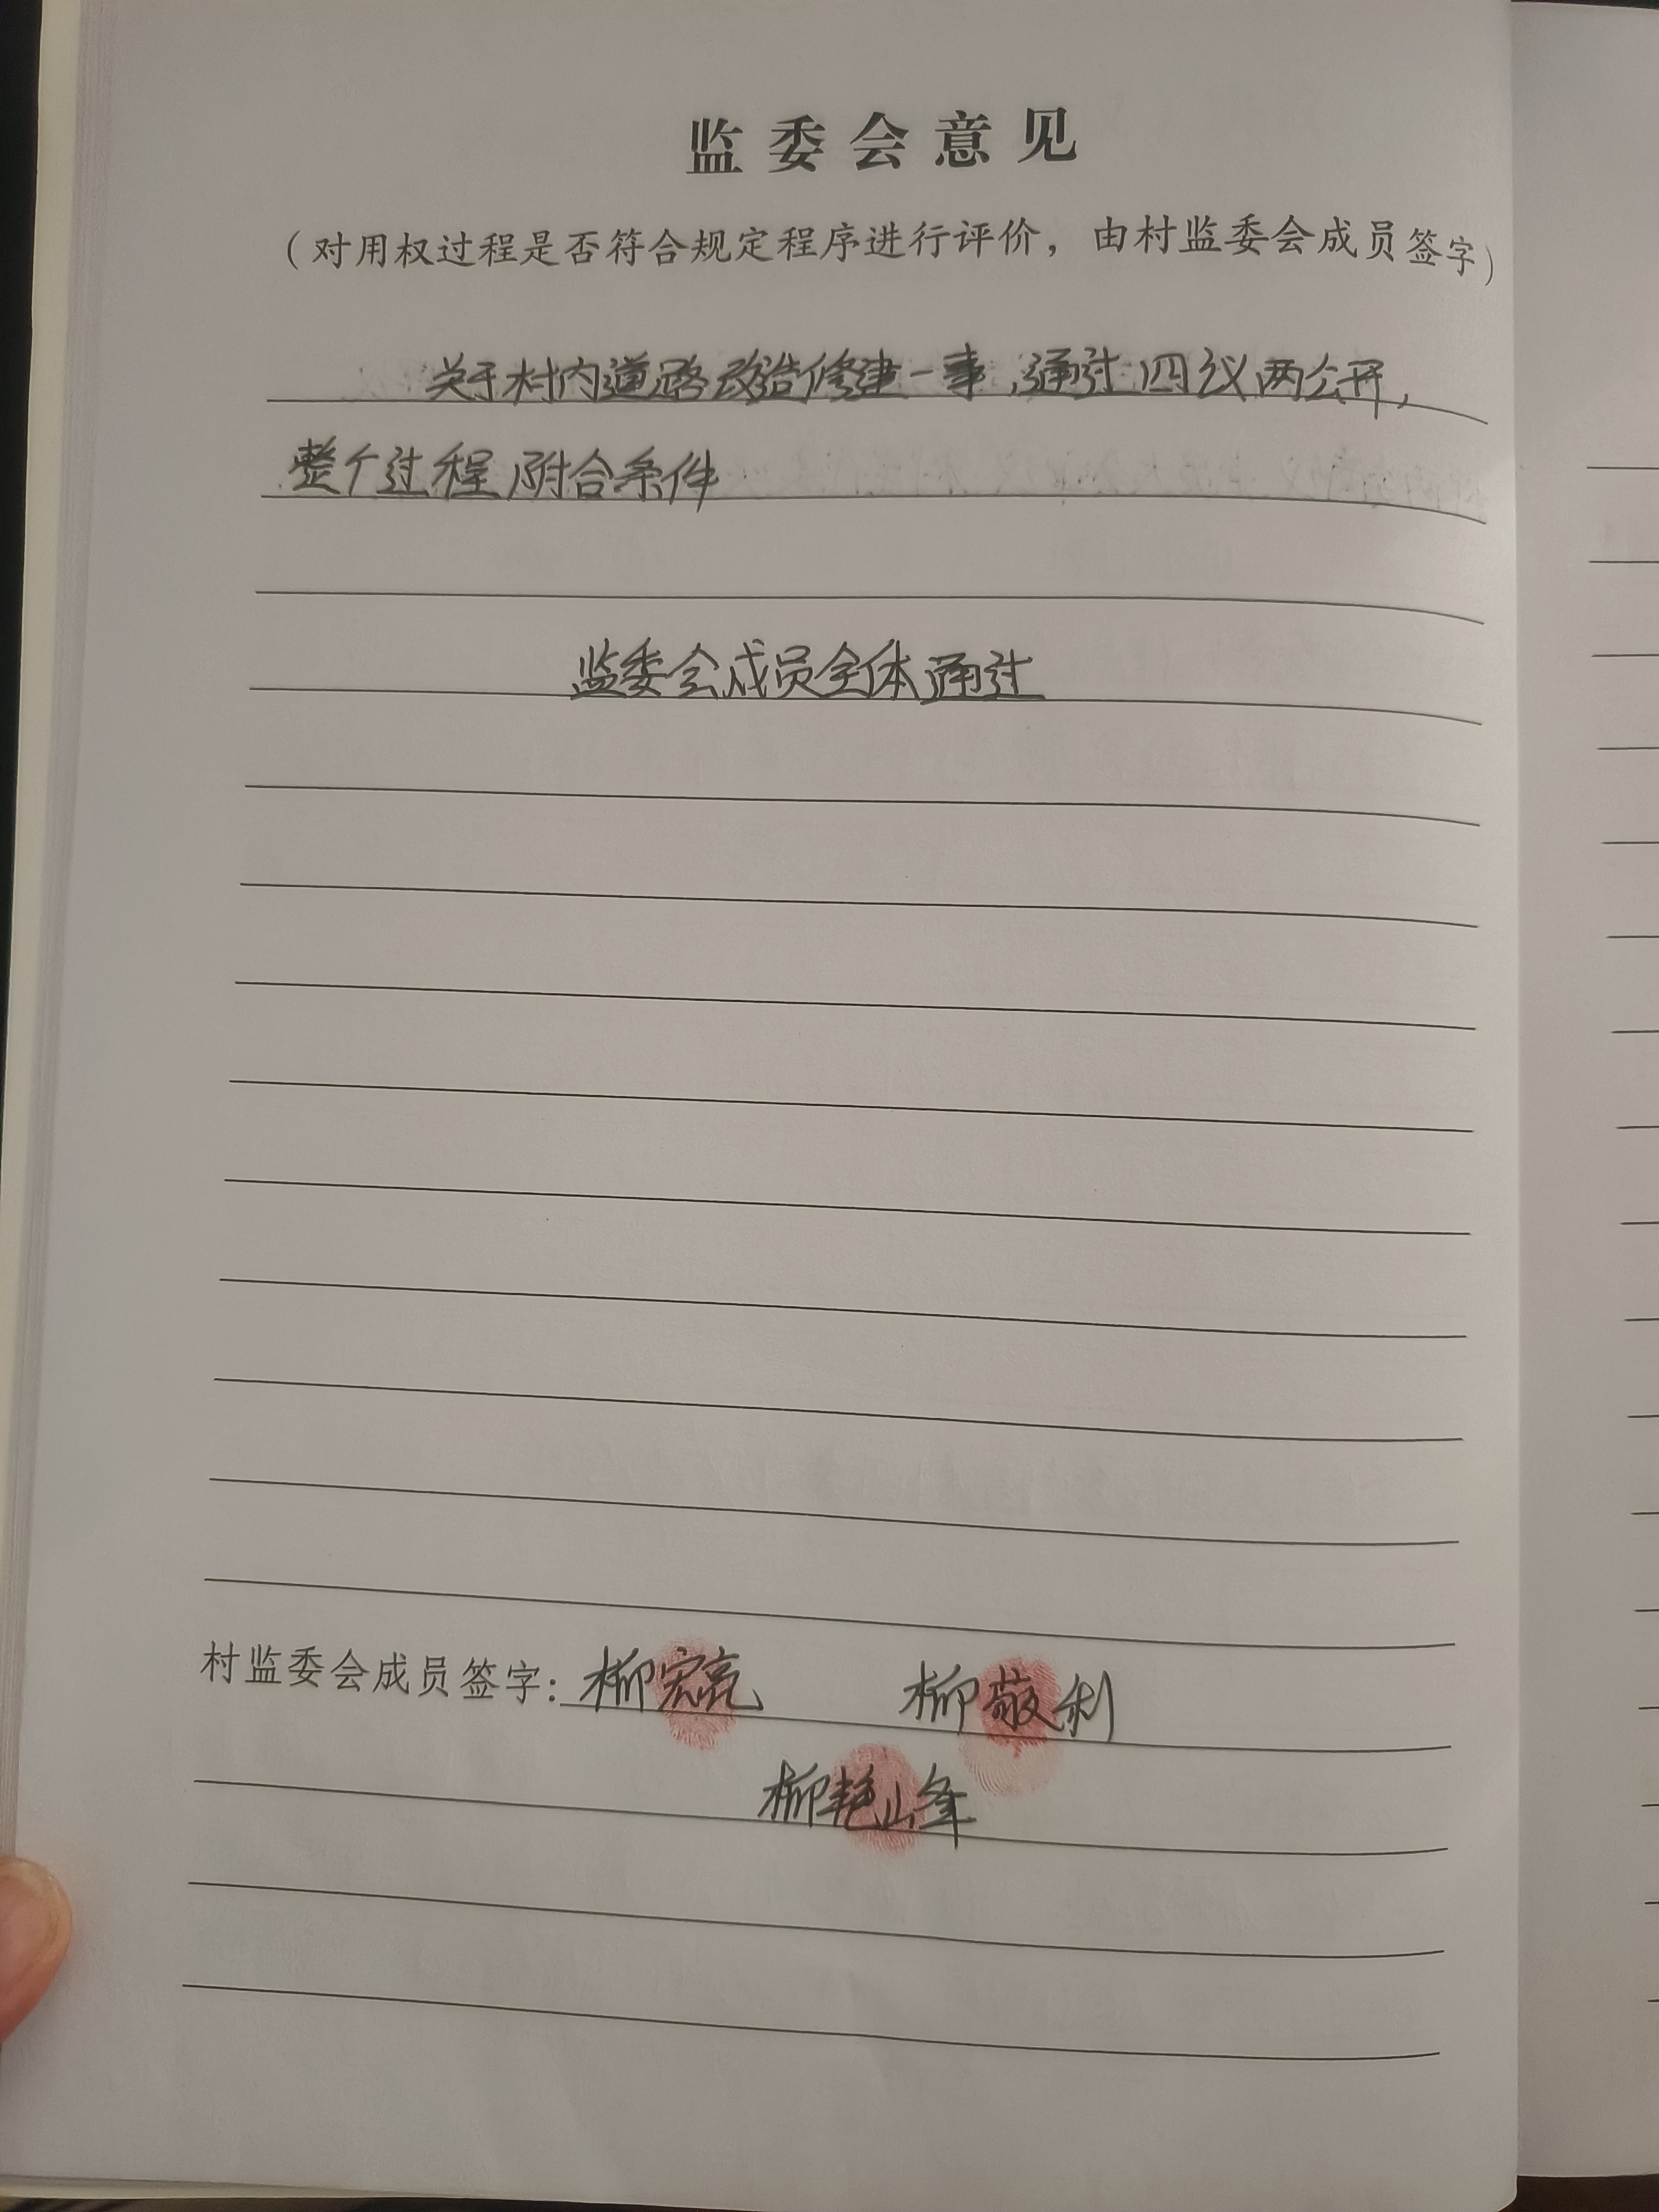 监委会意见
（对用权过程是否符合规定程序进行评价，由村监委会成员签字）
关于村内道路改造修建一事，通过四议两公开，
整个过程附合条件
监委会成员全体通过
村监委会成员签字：柳宏亮 柳敬利
柳艳峰